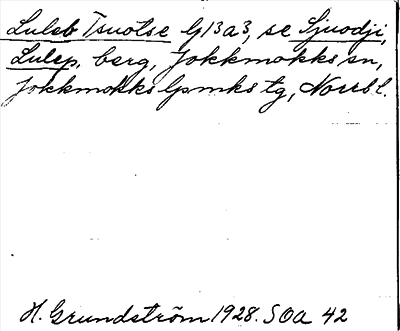 Luleb Tsuotse G13a3, se Sjuodji,
Lulep, berg, Jokkmokks sn,
Jokkmokks lpmks tg, Norrb l.
H. Grundström 1928. SOA 42